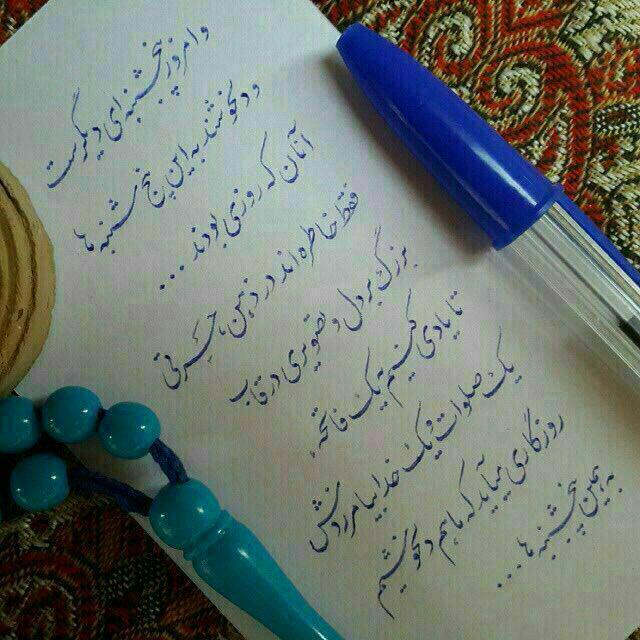 و امروز پنجشنبه‌ای دیگرست
و دلخوشند به این پنج شنبه ها
آنان که روزی بودند ...
فقط خاطره اند در ذهن، حسرتی
بزرگ بر دل و تصویری در قاب
تا یادی کنیم به یک فاتحه،
یک صلوات و یک خدا بیامرزدش
روزگاری می‌آید که ما هم دلخوشیم
به همین پنجشنبه ها ...